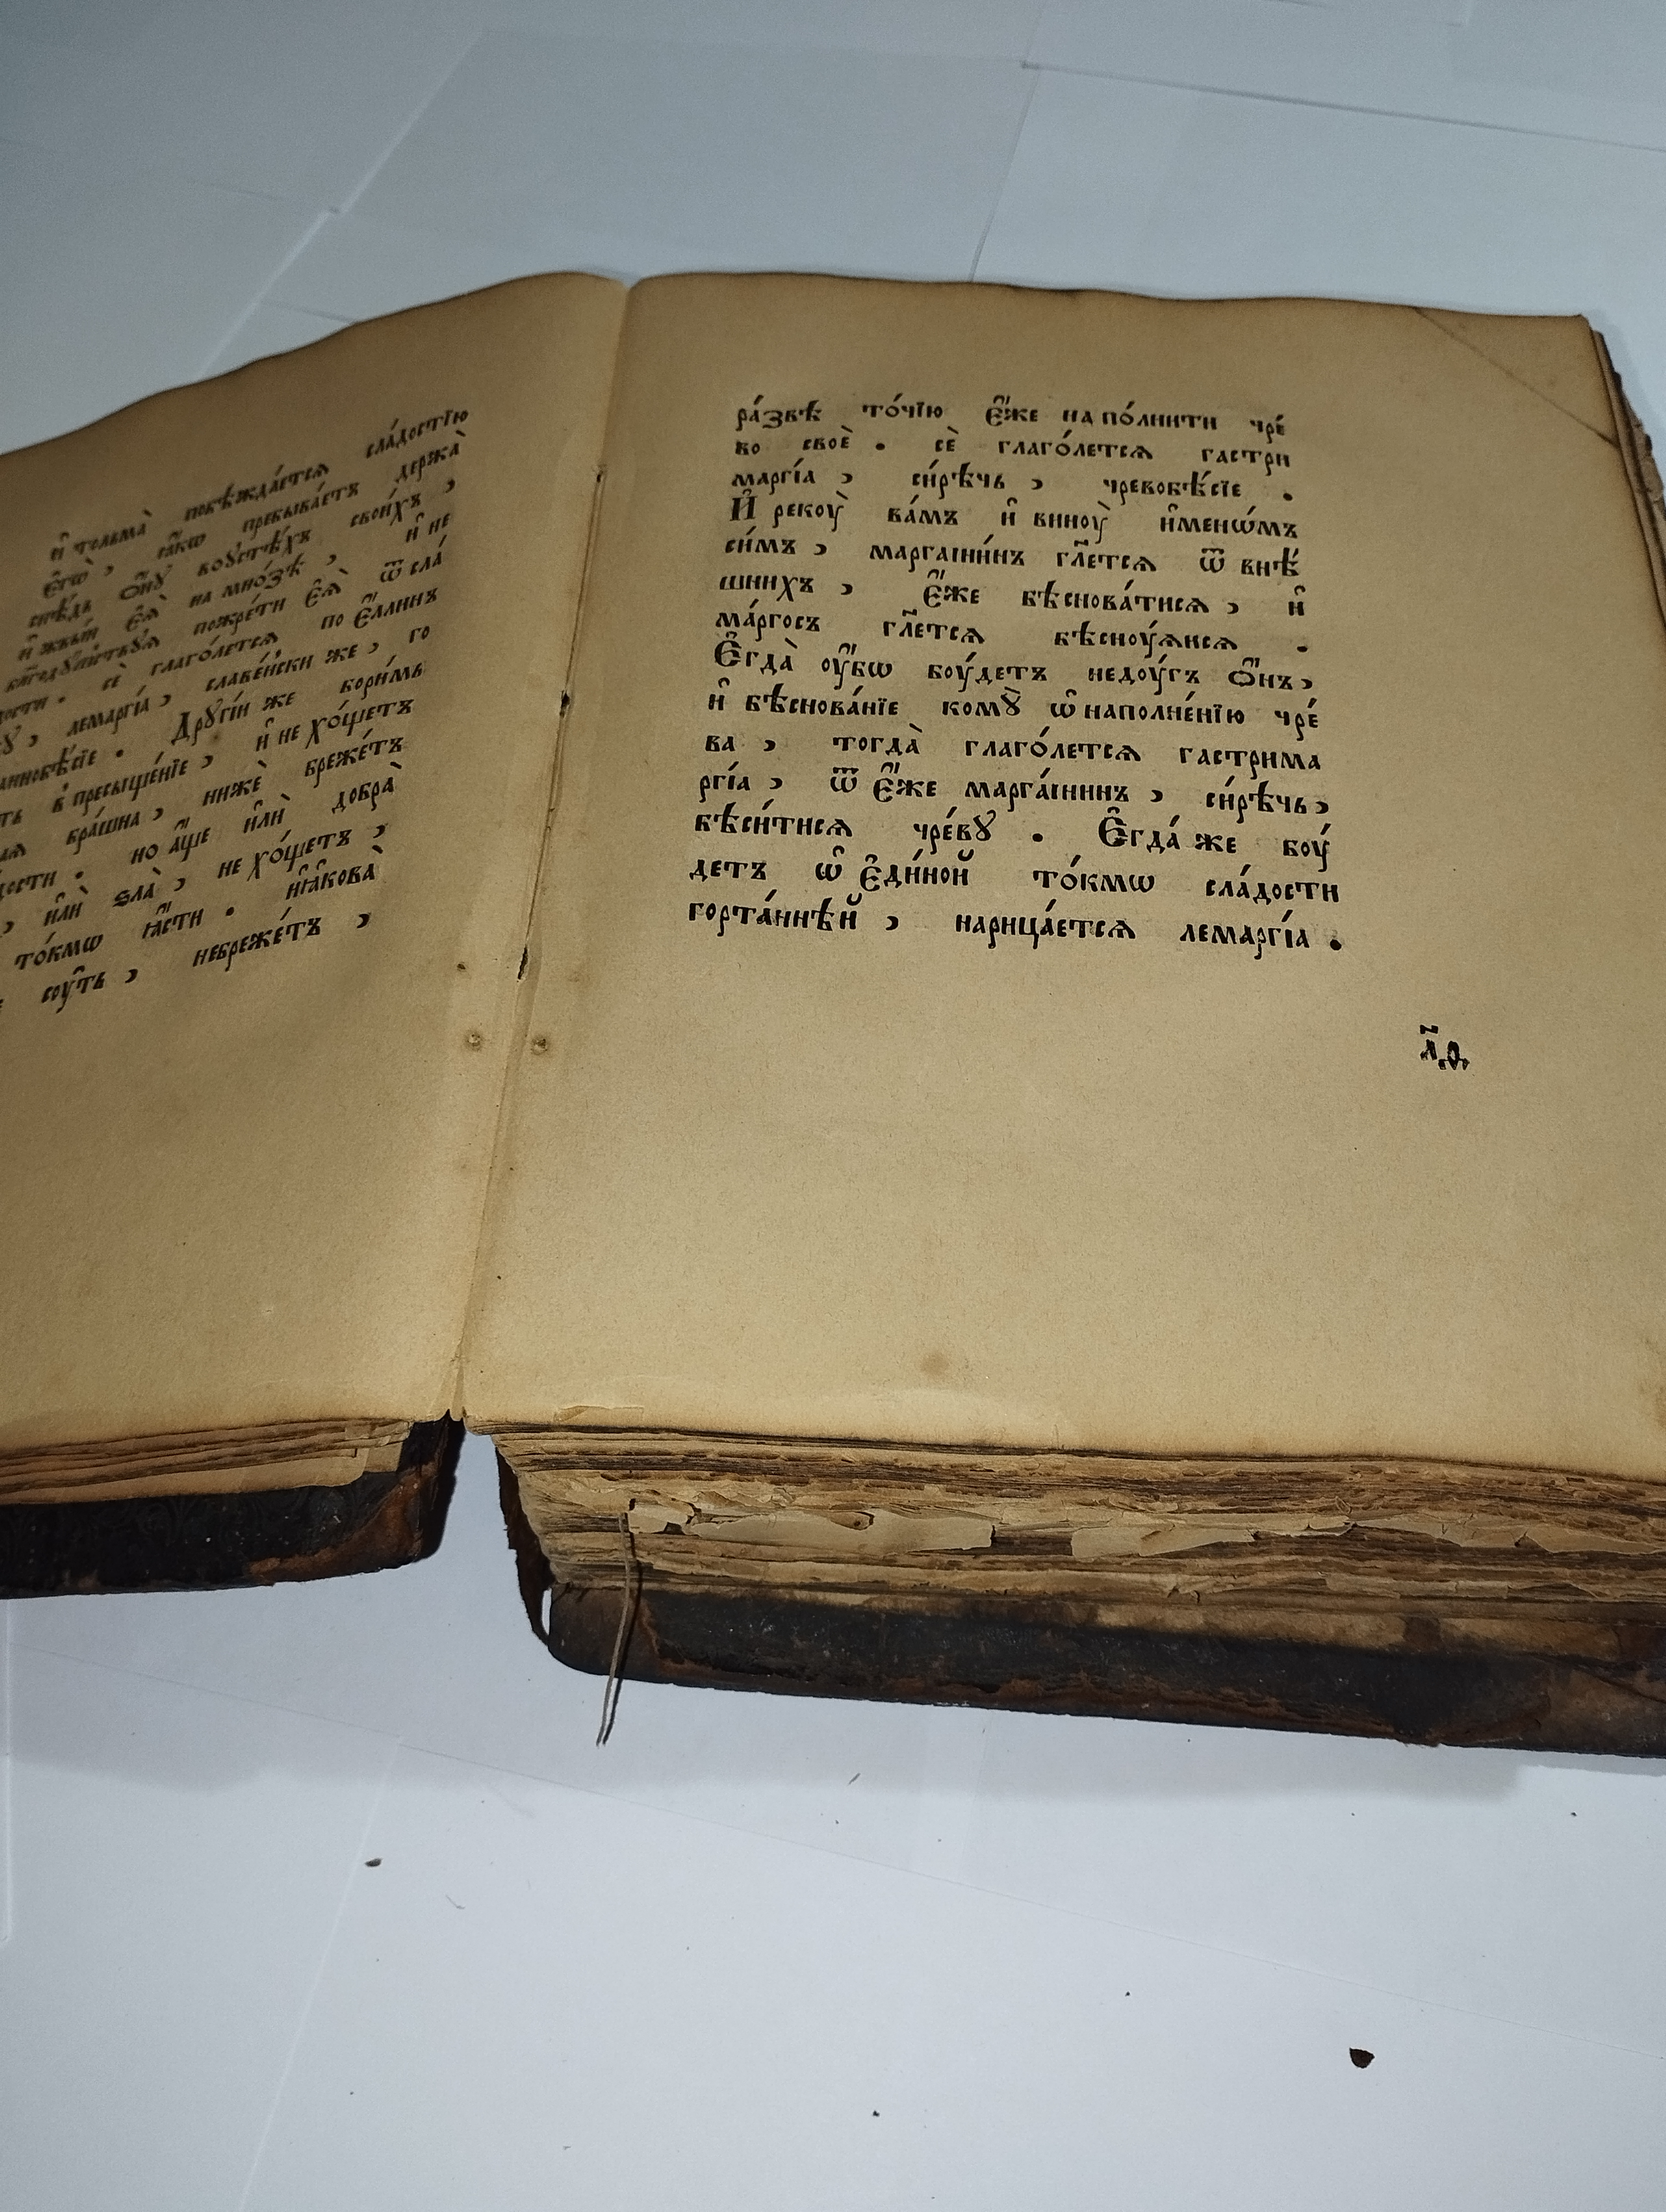 и҆ тольма̀ побѣжда́етсѧ сла́достїю
є҆гѡ̀ , ꙗ҆́кѡ пребыва́етъ держа̀
снѣ́дь ѻ҆́нꙋ воᲂустѣ́хъ свои́хъ ,
и҆ жвы́й є҆ѧ̀ на мно́зѣ , и҆ не
пожре́ти є҆ѧ̀ ѿ сла́
дости . сѐ глаго́летсѧ по є҆́ллинъ
лемаргі́а , славе́нски же , го
Дрꙋгі́и же бори́мь
в пресыще́нїе , и҆ не хо́щетъ
бра́шна , нижѐ бреже́тъ
но а҆́ще и҆лѝ добра̀
, и҆лѝ ѕла̀ , не хо́щетъ ,
то́кмѡ ꙗ҆́сти . ꙗ҆́кова̀
сᲂу́ть , небреже́тъ ,
ра́звѣ то́чїю є҆́же на по́лнити чре́
во своѐ . сѐ глаго́летсѧ гастри
маргі́а , си́рѣчь , чревобѣ́сїе .
И҆ рекᲂу̀ ва́мъ и҆ винᲂу̀ и҆менѡ́мъ
си́мъ , маргаіни́нъ гл҃етсѧ ѿ внѣ́
шнихъ , є҆́же бѣснова́тисѧ , и҆
ма́ргосъ гл҃етсѧ бѣснᲂу́ѧисѧ .
Є҆гда̀ ᲂу҆́бѡ бᲂу́детъ недᲂу́гъ ѻ҆́нъ ,
и҆ бѣснова́нїе комꙋ̀ ѡ҆ наполне́нїю чре́
ва , тогда̀ глаго́летсѧ гастрима
ргі́а , ѿ є҆́же марга́інинъ , си́рѣчь ,
бѣси́тисѧ чре́вꙋ . Є҆гда́ же бᲂу́
детъ ѡ҆ є҆ди́ной то́кмѡ сла́дости
горта́ннѣй , нарица́етсѧ лемаргі́а .
л҃ѳ.